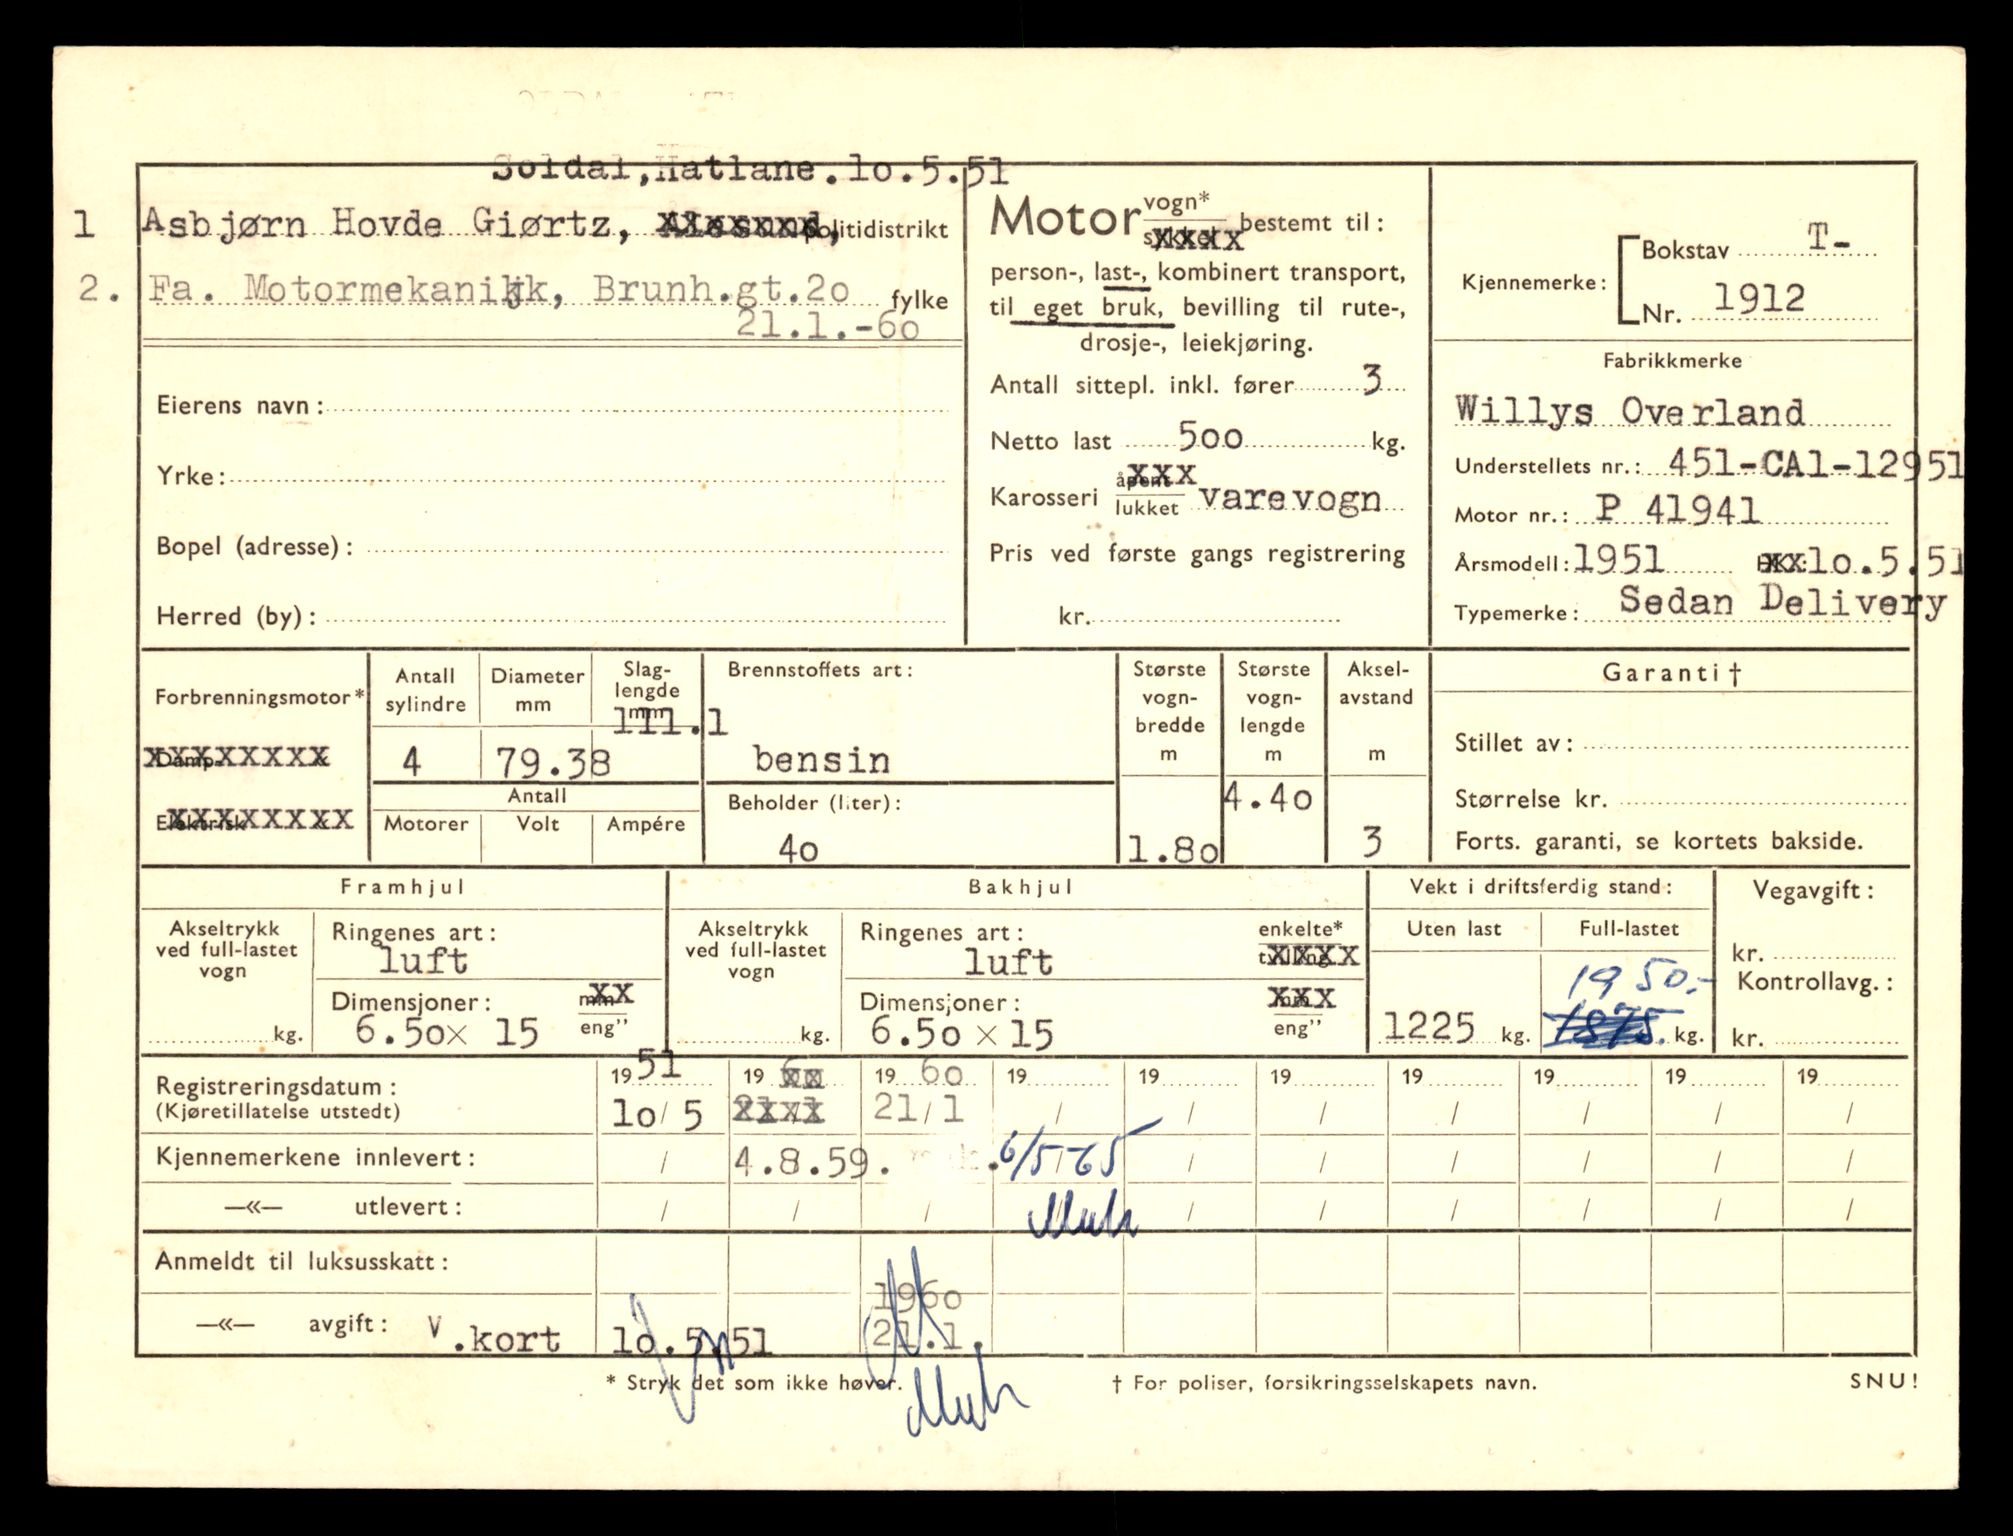 Soldal, Hatlane. lo.5.51
1 Asbjørn Hovde Giørtz, Ålesund, politidistrikt
2. Fa. Motormekanikk, Brunh.gt.2o fylke
21.1.-6o
Eierens navn:
Yrke:
Bopel (adresse):
Herred (by):
Motor vogn* bestemt til:
person-, last-, kombinert transport,
til eget bruk, bevilling til rute-,
drosje-, leiekjøring.
Antall sittepl. inkl. fører 3
Netto last 5oo kg.
Karosseri åpent xxx
lukket varevogn
Pris ved første gangs registrering
kr.
Kjennemerke: Bokstav T-
Nr. 1912
Fabrikkmerke
Willys Overland
Understellets nr.: 451-CA1-12951
Motor nr.: P 41941
Årsmodell: 1951 xx lo.5.51
Typemerke: Sedan Delivery
Forbrenningsmotor*
Damp xxxxxxxx
Elektrisk xxxxxxxx
Antall sylindre
4
Diameter mm
79.38
Slag-lengde mm
111.1
Antall
Motorer Volt Ampére
Brennstoffets art:
bensin
Beholder (liter):
4o
Største vogn-bredde m
1.8o
Største vogn-lengde m
4.4o
Aksel-avstand m
3
Garanti †
Stillet av:
Størrelse kr.
Forts. garanti, se kortets bakside.
Framhjul
Akseltrykk ved full-lastet vogn
kg.
Ringenes art:
luft
Dimensjoner: mm xx
6.5o x 15 eng"
Bakhjul
Akseltrykk ved full-lastet vogn
kg.
Ringenes art: enkelte*
luft tvilling xxxx
Dimensjoner: mm xxx
6.5o x 15 eng"
Vekt i driftsferdig stand:
Uten last Full-lastet
1950.-
1225 kg. 1875. kg.
Vegavgift:
kr.
Kontrollavg.:
kr.
Registreringsdatum: 19 51 19 xx 19 6o 19 19 19 19 19 19 19
(Kjøretillatelse utstedt) lo/5 xxxx 21/1 / / / / / / /
Kjennemerkene innlevert: / 4.8.59. 6/5-65 / / / / / /
—«— utlevert: / / / / / / / / /
Muh
Anmeldt til luksusskatt:
196o
—«— avgift: V.kort lo.5.51 21.1.
Muh
* Stryk det som ikke høver. † For poliser, forsikringsselskapets navn. SNU!